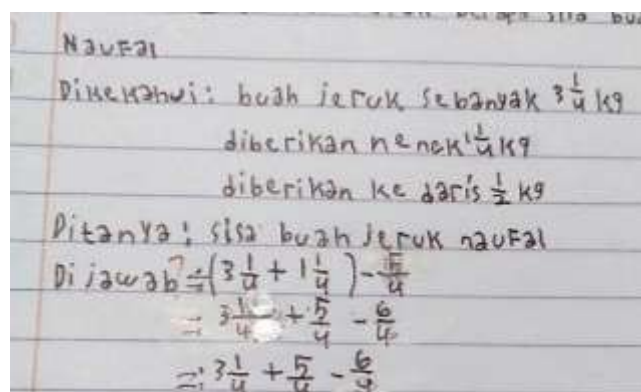 berapa sisa
Naufal
Dikekahui: buah jeruk sebanyak 3 1/4 kg
diberikan nenek 1 1/4 kg
diberikan ke daris 1/2 kg
Ditanya: sisa buah jeruk naufal
Dijawab = (3 1/4 + 1 1/4) -
= 3 1/4 + 5/4 - 6/4
= 3 1/4 + 5/4 - 6/4